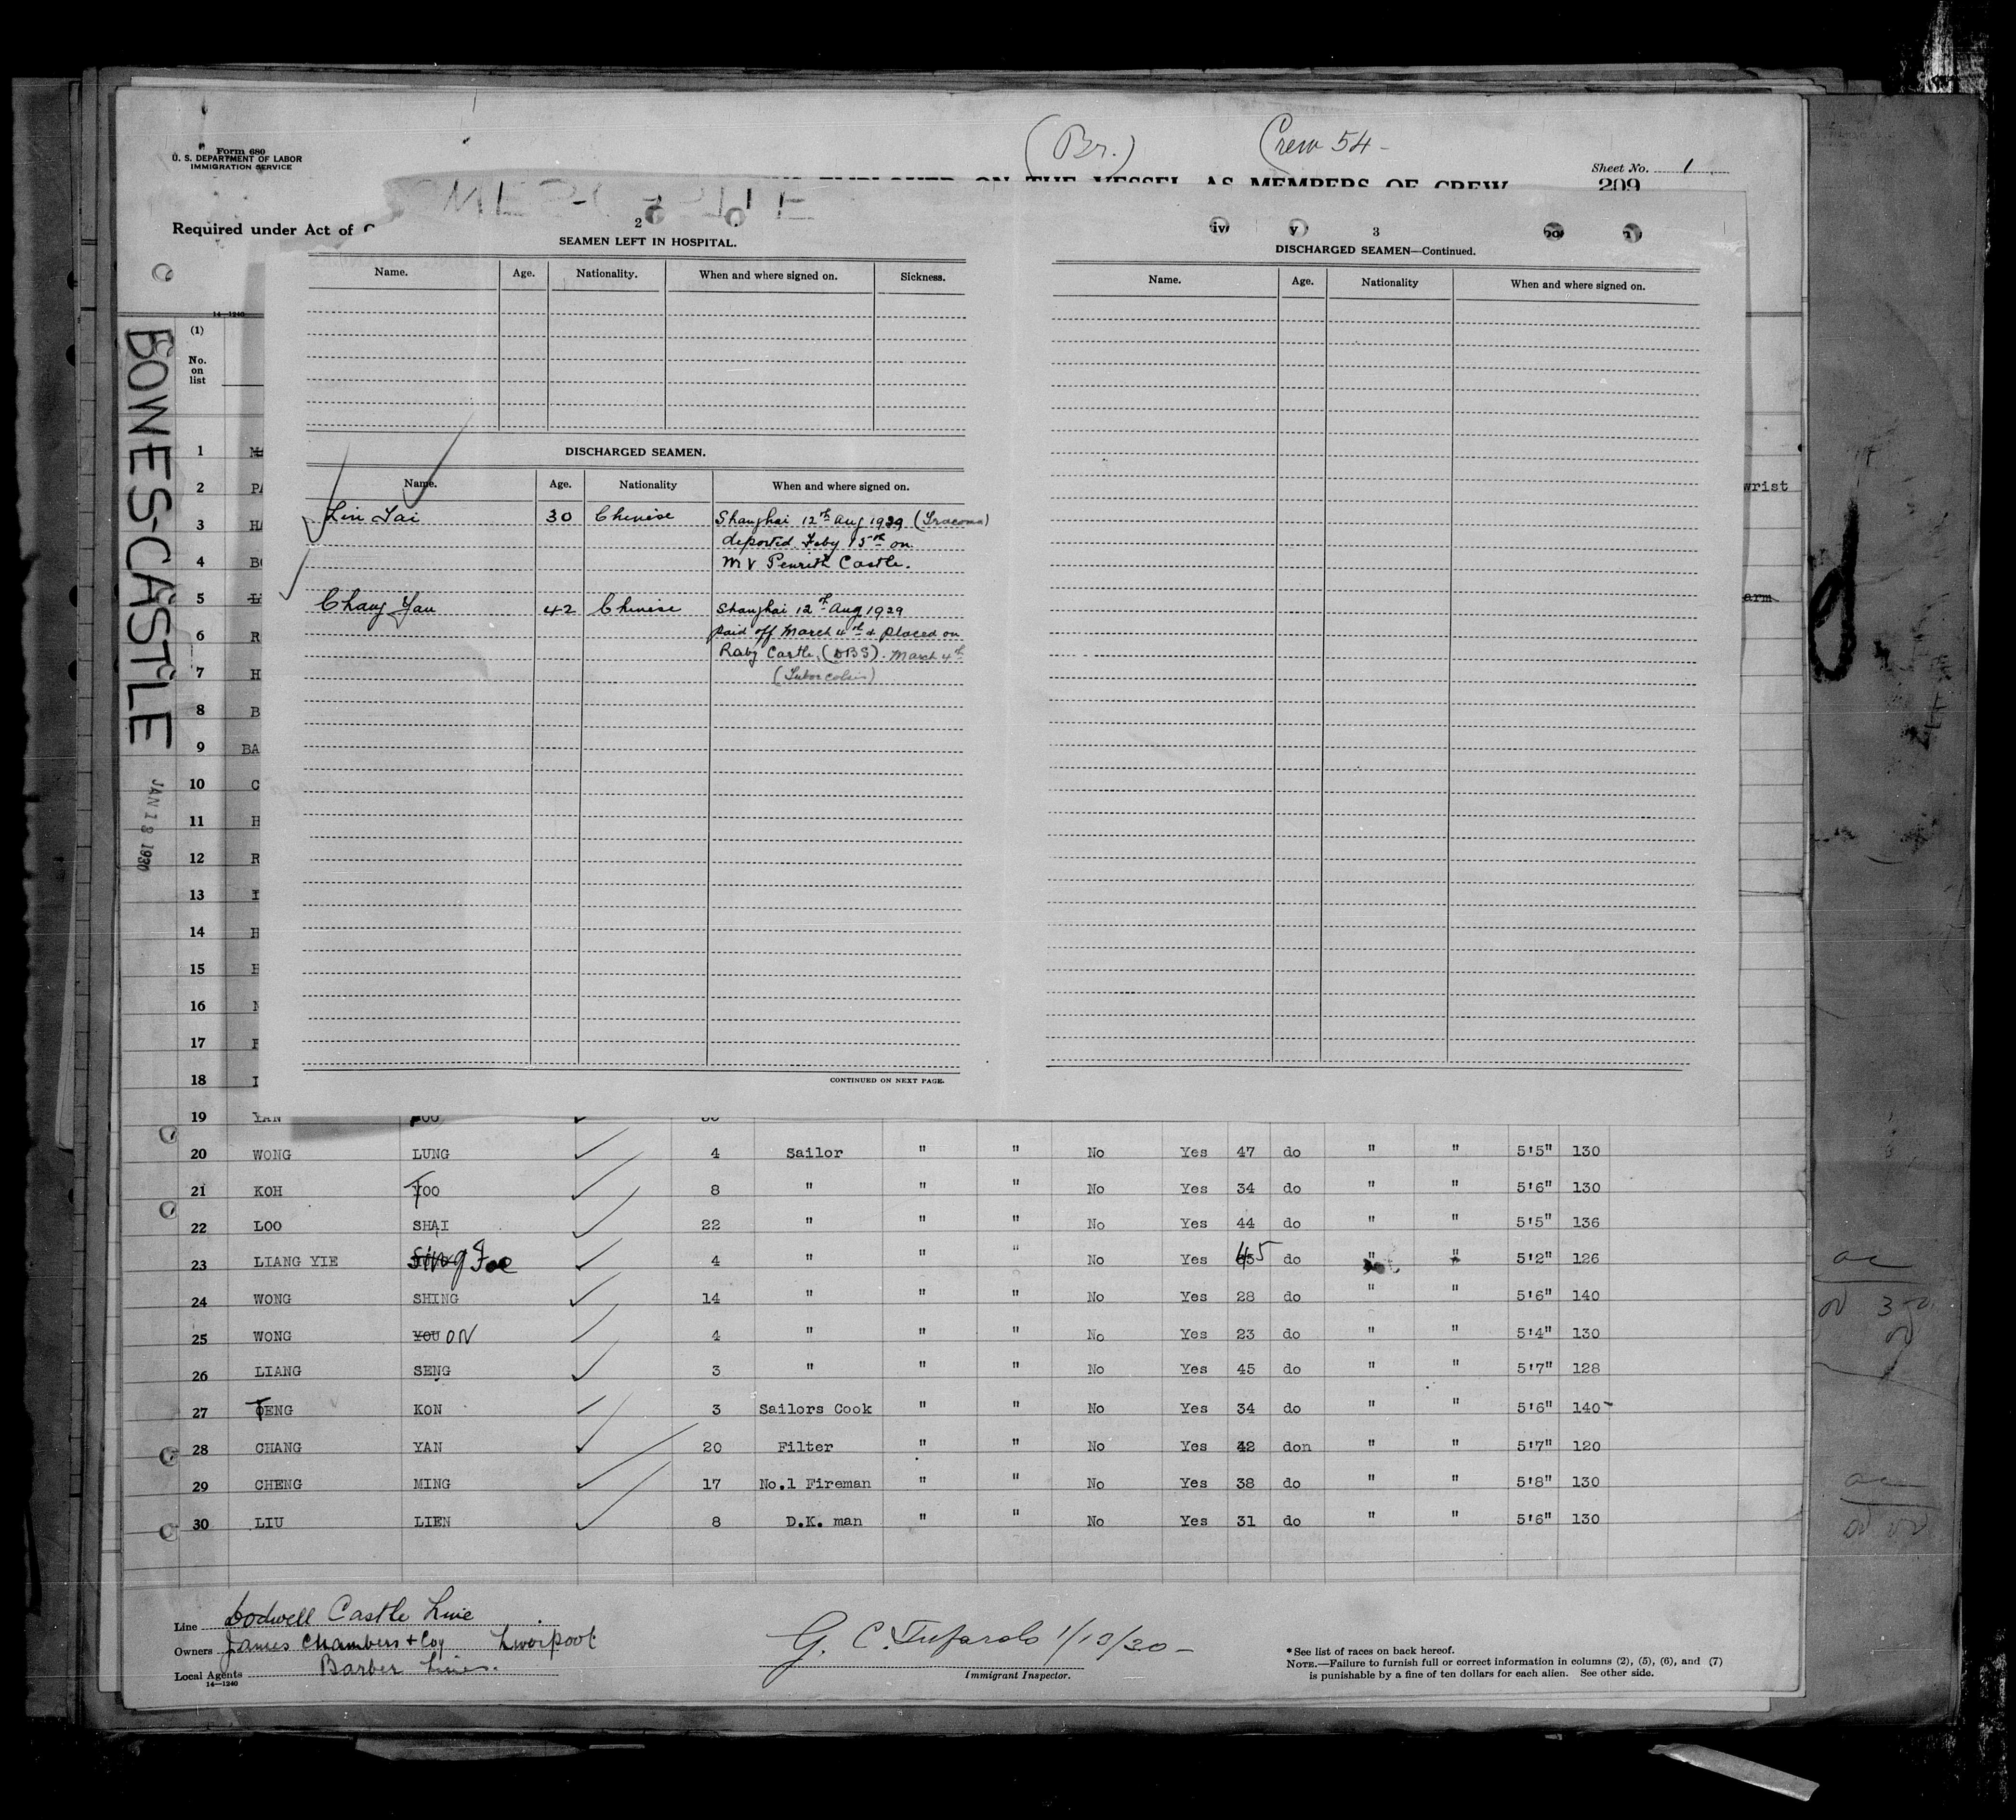 (Br.) Crew 54 -
Form 680
U. S. DEPARTMENT OF LABOR
IMMIGRATION SERVICE
Sheet No. 1
209
EMPLOYED ON THE VESSEL AS MEMBERS OF CREW
Required under Act of
2
SEAMEN LEFT IN HOSPITAL.
Name. Age. Nationality. When and where signed on. Sickness.
DISCHARGED SEAMEN.
Name. Age. Nationality When and where signed on.
30 Chinese Shanghai 12th Aug 1929 (Tracoma)
deported Feby 15th on
MV Penrith Castle.
Chang Yan 42 Chinese Shanghai 12th Aug 1929
paid off March 4th & placed on
Raby Castle. (DBS). March 4th
(Tubercolsis)
CONTINUED ON NEXT PAGE.
iv v 3
DISCHARGED SEAMEN—Continued.
Name. Age. Nationality When and where signed on.
14—1240
(1)
No.
on
list
BOWES-CASTLE
JAN 13 1930
1
2 PA wrist
3 HA
4 BO
5 arm
6 R
7 H
8 B
9 BA
10 C
11 H
12 R
13
14 H
15
16
17
18
19 YAN
20 WONG LUNG 4 Sailor " " No Yes 47 do " " 5'5" 130
21 KOH TOO 8 " " " No Yes 34 do " " 5'6" 130
22 LOO SHAI 22 " " " No Yes 44 do " " 5'5" 136
23 LIANG YIE Sing Foe 4 " " " No Yes 45 do " " 5'2" 126
24 WONG SHING 14 " " " No Yes 28 do " " 5'6" 140
25 WONG YOU ON 4 " " " No Yes 23 do " " 5'4" 130
26 LIANG SENG 3 " " " No Yes 45 do " " 5'7" 128
27 TENG KON 3 Sailors Cook " " No Yes 34 do " " 5'6" 140
28 CHANG YAN 20 Filter " " No Yes 42 don " " 5'7" 120
29 CHENG MING 17 No.1 Fireman " " No Yes 38 do " " 5'8" 130
30 LIU LIEN 8 D.K. man " " No Yes 31 do " " 5'6" 130
Line Dodwell Castle Line
Owners James Chambers & Coy Liverpool
Local Agents Barber Lines.
14—1240
G. C. Tufarolo 1/13/30 -
Immigrant Inspector.
* See list of races on back hereof.
NOTE.—Failure to furnish full or correct information in columns (2), (5), (6), and (7)
is punishable by a fine of ten dollars for each alien. See other side.